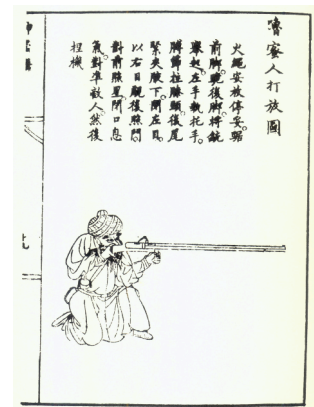 嚕蜜人打放圖
火繩安放停妥。踞
前脚跪後脚將銃
舉起。左手執托手。
節拄膝頭。後尾
緊夾腋下。閉左目。
以右目覷後照門。
對前照星。閉口息
氣。對準敵人。然後
捏機